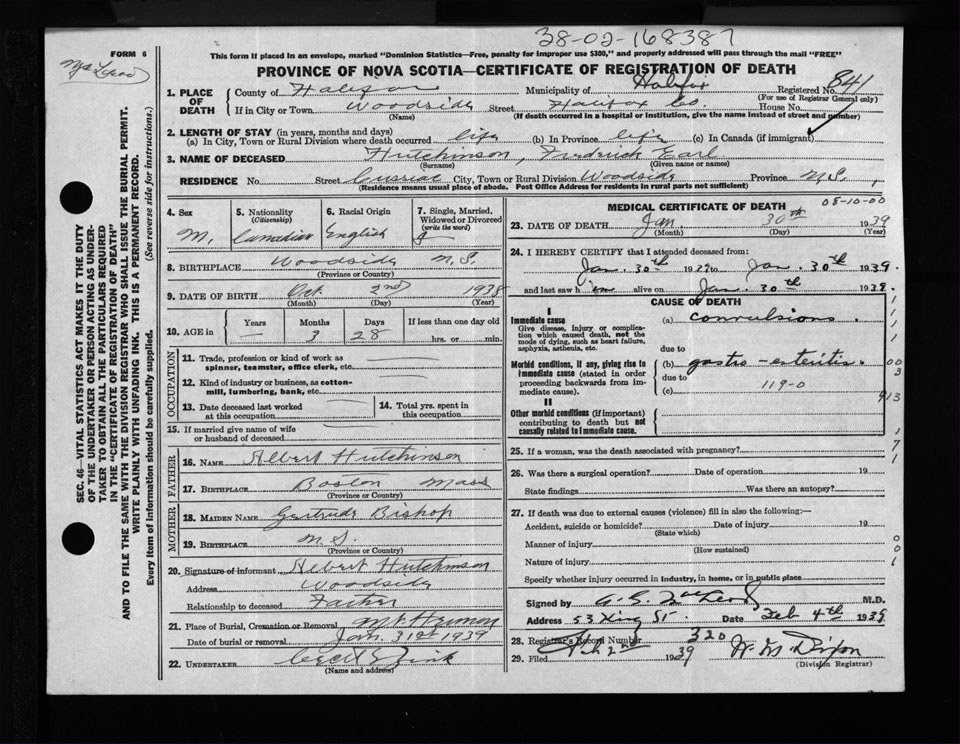 38-02-168387
FORM 6
This form if placed in an envelope, marked "Dominion Statistics—Free, penalty for improper use $300," and properly addressed will pass through the mail "FREE"
PROVINCE OF NOVA SCOTIA—CERTIFICATE OF REGISTRATION OF DEATH
1. PLACE OF DEATH County of Halifax Municipality of Halifax Registered No. 841
(For use of Registrar General only)
If in City or Town Woodside Street Halifax Co. House No.
(Name) (If death occurred in a hospital or institution, give the name instead of street and number)
2. LENGTH OF STAY (in years, months and days)
(a) In City, Town or Rural Division where death occurred life (b) In Province life (c) In Canada (if immigrant)
3. NAME OF DECEASED Hutchinson, Fredrick Earl
(Surname) (Given name or names)
RESIDENCE No. Street City, Town or Rural Division Woodside Province N.S.
(Residence means usual place of abode. Post Office Address for residents in rural parts not sufficient)
4. Sex M.
5. Nationality (Citizenship) Canadian
6. Racial Origin English
7. Single, Married, Widowed or Divorced (write the word) S
8. BIRTHPLACE Woodside N.S.
(Province or Country)
9. DATE OF BIRTH Oct 2nd 1938
(Month) (Day) (Year)
10. AGE in Years — Months 3 Days 28 If less than one day old
hrs. or min.
OCCUPATION
11. Trade, profession or kind of work as spinner, teamster, office clerk, etc.
12. Kind of industry or business, as cotton-mill, lumbering, bank, etc.
13. Date deceased last worked at this occupation
14. Total yrs. spent in this occupation
15. If married give name of wife or husband of deceased
FATHER
16. NAME Albert Hutchinson
17. BIRTHPLACE Boston Mass
(Province or Country)
MOTHER
18. MAIDEN NAME Gertrude Bishop
19. BIRTHPLACE N.S.
(Province or Country)
20. Signature of informant Albert Hutchinson
Address Woodside
Relationship to deceased Father
21. Place of Burial, Cremation or Removal Mt Hermon
Date of burial or removal Jan. 31st 1939
22. UNDERTAKER Cecil E Zink
(Name and address)
MEDICAL CERTIFICATE OF DEATH 08-10-00
23. DATE OF DEATH Jan. 30th 1939
(Month) (Day) (Year)
24. I HEREBY CERTIFY that I attended deceased from:
Jan. 30th 1939 to Jan. 30th 1939.
and last saw him alive on Jan. 30th 1939.
CAUSE OF DEATH
I
Immediate cause (a) convulsions.
Give disease, injury or complication which caused death, not the mode of dying, such as heart failure, asphyxia, asthenia, etc.
due to
Morbid conditions, if any, giving rise to immediate cause (stated in order proceeding backwards from immediate cause). (b) gastro-enteritis.
due to
(c) 119-0
II
Other morbid conditions (if important) contributing to death but not causally related to immediate cause.
913
25. If a woman, was the death associated with pregnancy?
26. Was there a surgical operation? Date of operation 19
State findings Was there an autopsy?
27. If death was due to external causes (violence) fill in also the following:—
Accident, suicide or homicide? Date of injury 19
(State which)
Manner of injury
(How sustained)
Nature of injury
Specify whether injury occurred in industry, in home, or in public place
Signed by M.D.
Address 53 King St. Date Feb 4th 1939
28. Registrar's Record Number 320
29. Filed Feb 2nd 1939 W. M. Dixon
(Division Registrar)
SEC. 46—VITAL STATISTICS ACT MAKES IT THE DUTY
OF THE UNDERTAKER OR PERSON ACTING AS UNDER-
TAKER TO OBTAIN ALL THE PARTICULARS REQUIRED
IN THE "CERTIFICATE OF REGISTRATION OF DEATH"
AND TO FILE THE SAME WITH THE DIVISION REGISTRAR WHO SHALL ISSUE THE BURIAL PERMIT.
WRITE PLAINLY WITH UNFADING INK. THIS IS A PERMANENT RECORD.
Every item of information should be carefully supplied. (See reverse side for instructions.)